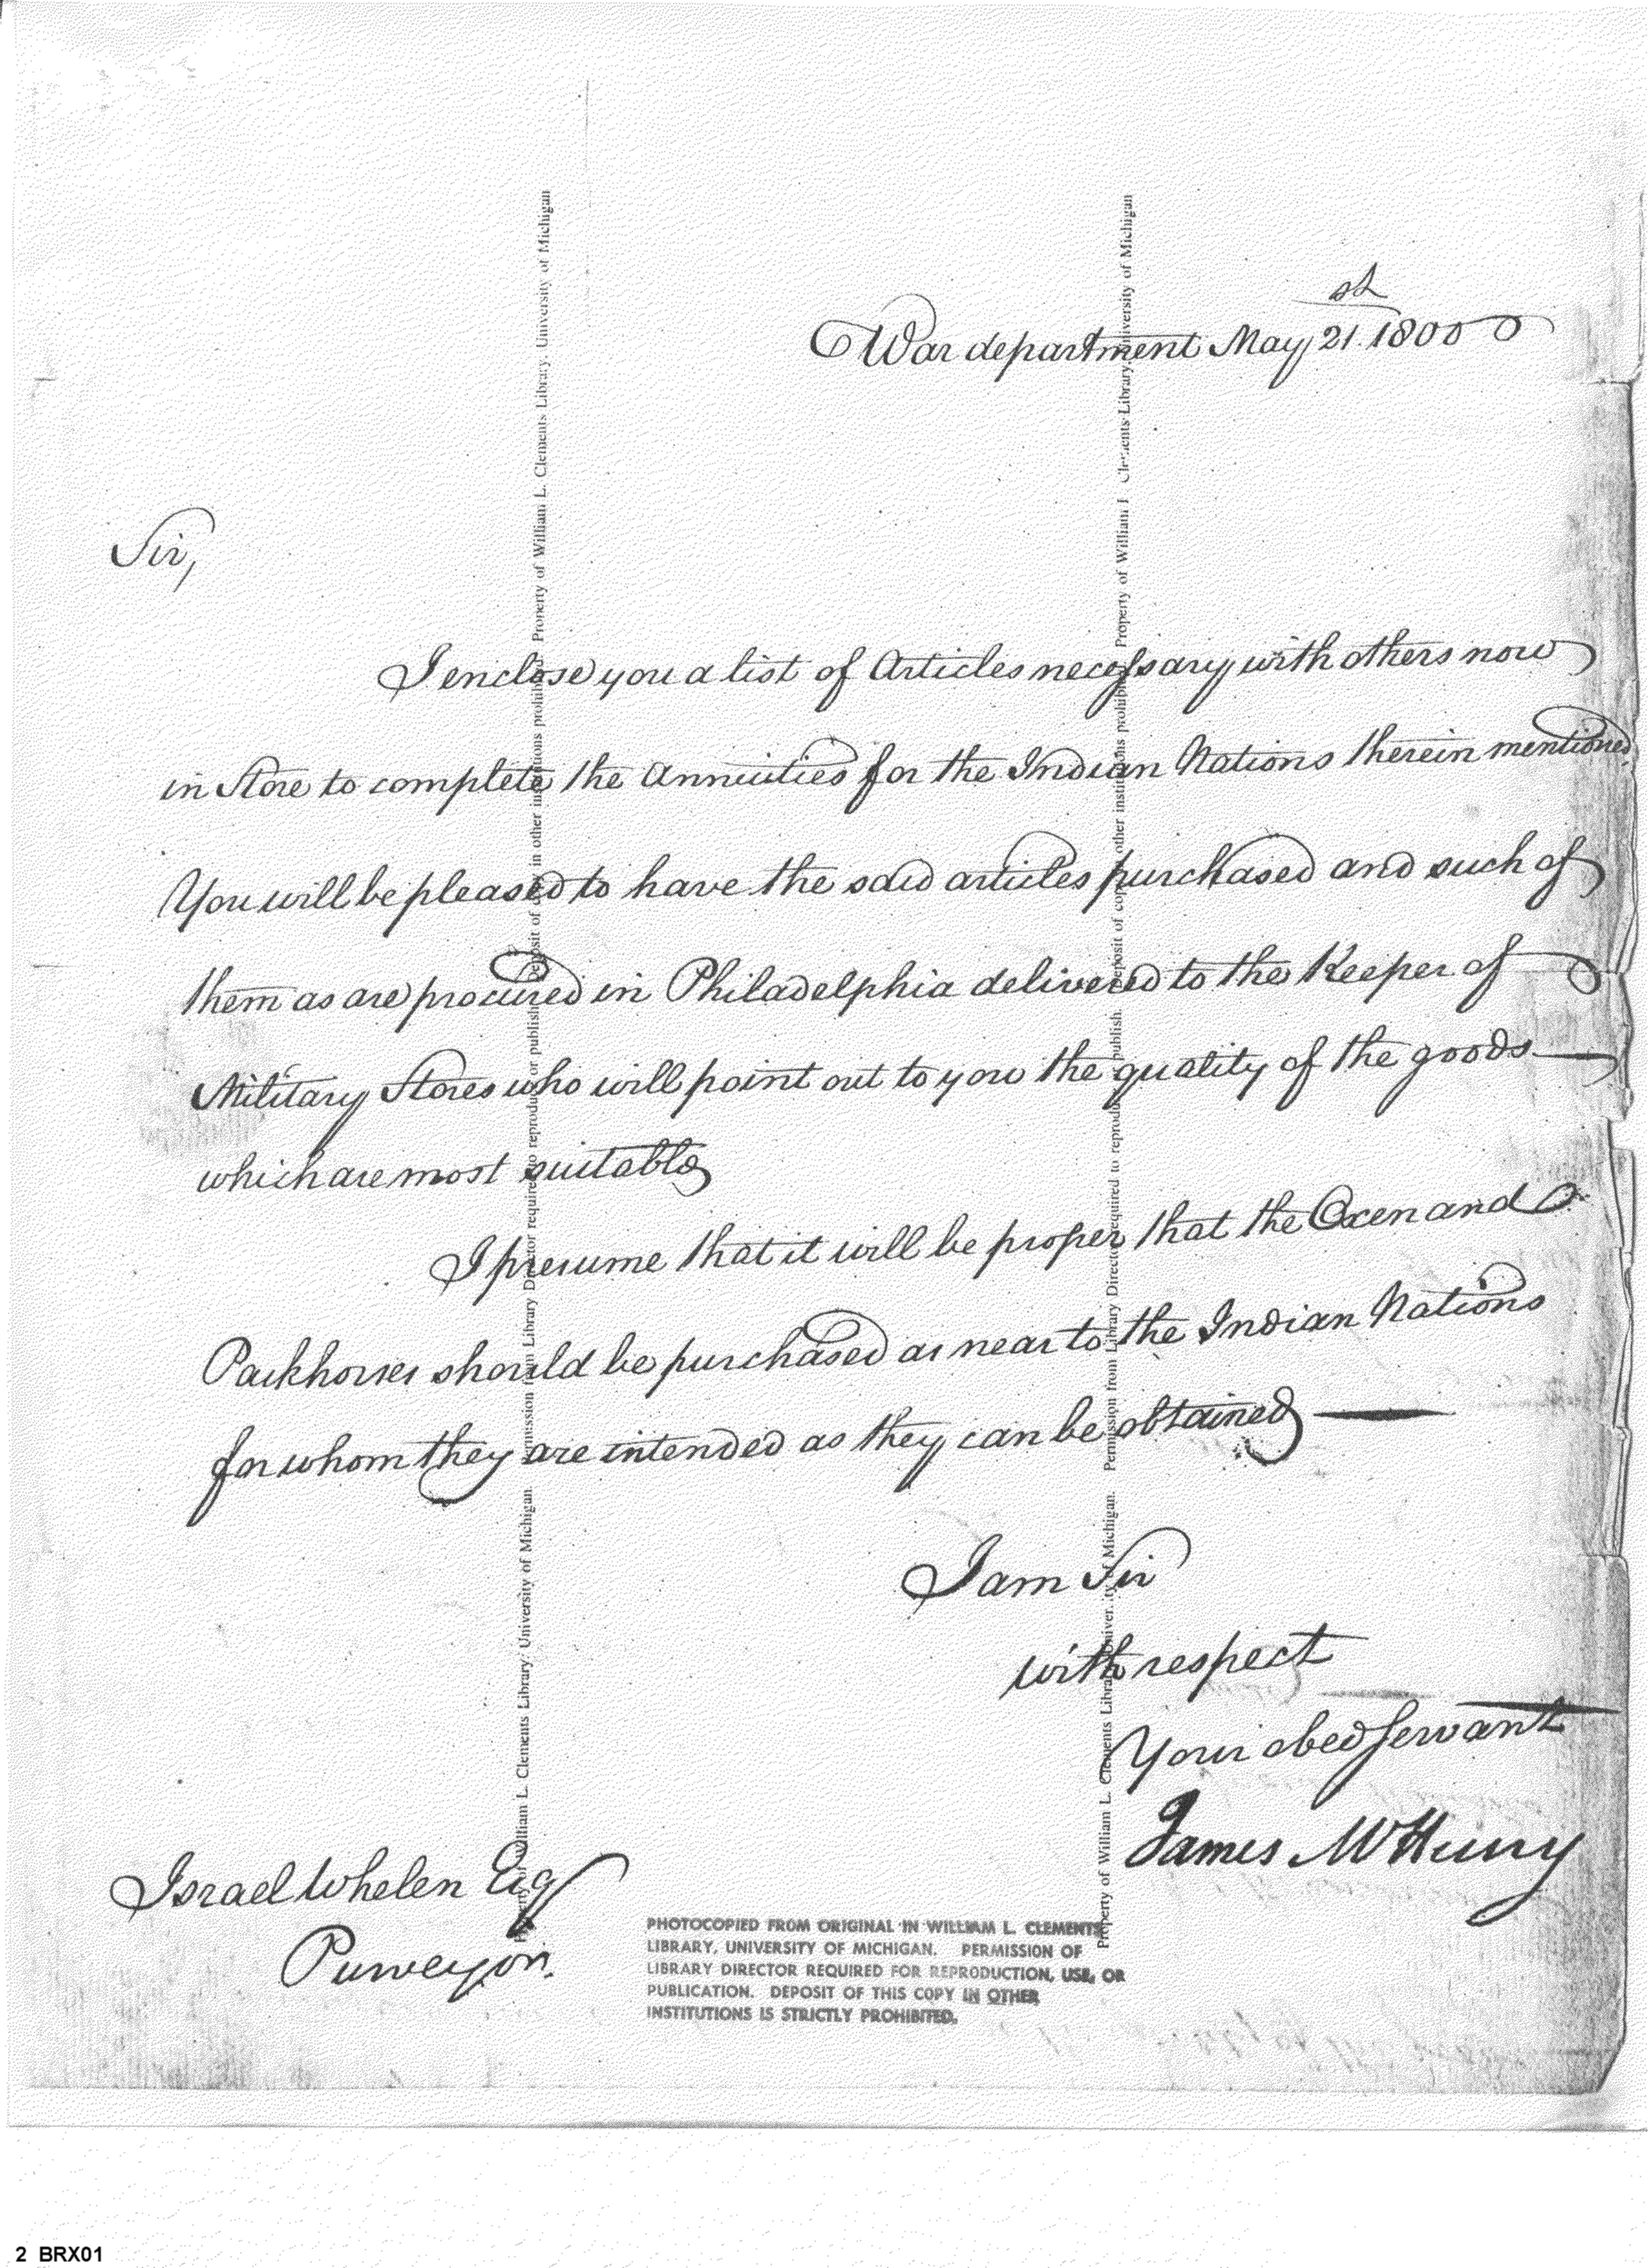 War department May 21.st 1800
Sir,
I enclose you a list of Articles necessary with others now
in Store to complete the Annuities for the Indian Nations therein mentioned.
You will be pleased to have the said articles purchased and such of
them as are procured in Philadelphia delivered to the Keeper of
Military Stores who will point out to you the quality of the goods—
which are most suitable
I presume that it will be proper that the Oxen and
Packhorses should be purchased as near to the Indian Nations
for whom they are intended as they can be obtained —
I am Sir
with respect
Your obed servant
James McHenry
Israel Whelen Esq
Purveyor.
PHOTOCOPIED FROM ORIGINAL IN WILLIAM L. CLEMENTS
LIBRARY, UNIVERSITY OF MICHIGAN. PERMISSION OF
LIBRARY DIRECTOR REQUIRED FOR REPRODUCTION, USE, OR
PUBLICATION. DEPOSIT OF THIS COPY IN OTHER
INSTITUTIONS IS STRICTLY PROHIBITED.
Property of William L. Clements Library, University of Michigan. Permission from Library Director required to reproduce or publish. Deposit of copy in other institutions prohibited. Property of William L. Clements Library, University of Michigan
Property of William L. Clements Library, University of Michigan. Permission from Library Director required to reproduce or publish. Deposit of copy in other institutions prohibited. Property of William L. Clements Library, University of Michigan
2 BRX01